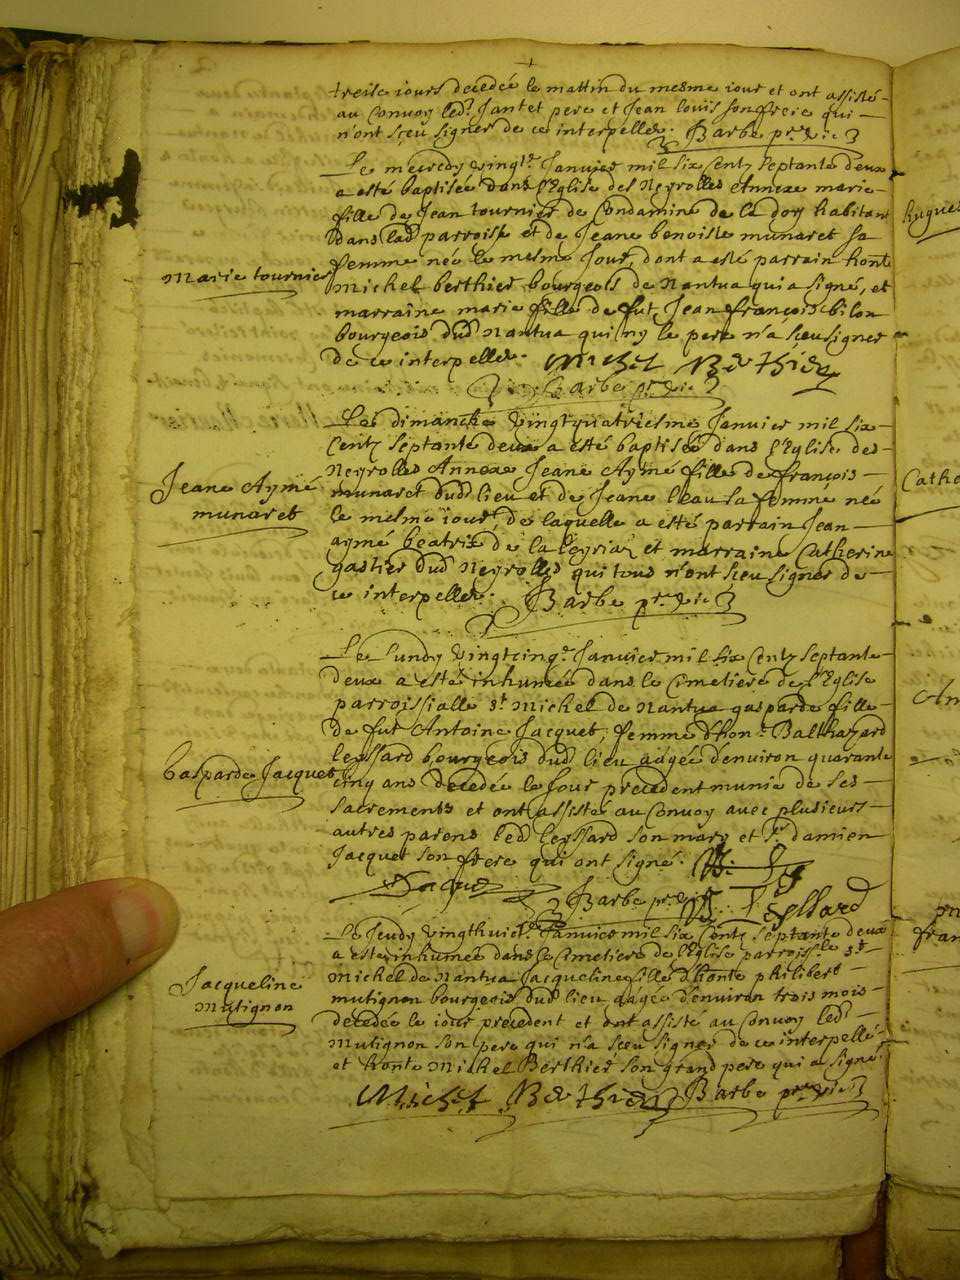 treise iours decedée le mattin du mesme iour et ont assisté
au Convoy led.t Jantet pere et Jean louis son frere qui
n'ont sçeu signer de ce interpellés. Barbe p.re vic.
Le mecredy vingt.e Janvier mil six Centz septante deux
a esté baptisée dans l'Eglise des Neyrolles Annexe marie
fille de Jean tournier de Condamine de la doy habitant
dans lad. parroisse et de Jeane benoiste munaret sa
femme née le mesme Jour, dont a esté parrain hon.te
Michel berthier bourgeois de Nantua qui a signé, et
marraine marie fille de fut Jean françois bilon
bourgeois dud. Nantua qui ny le pere n'a sceu signer
de ce interpellés. Michel Berthier
Barbe p.re vic.
Marie tournier
Le dimanche vingtquatriesme Janvier mil six
Centz septante deux a esté baptisée dans l'Eglise des
Neyrolles Annexe Jeane Aymé fille de françois
munaret dud. lieu et de Jeane beau sa femme née
le mesme iour, de laquelle a esté parrain Jean
aymé beatrix de la leyriaz et marraine Catherine
gastier dud. Neyrolles qui tous n'ont sceu signer de
ce interpellés. Barbe p.re vic.
Jeane Aymé
munaret
Le Lundy vingtcinq.e Janvier mil six Centz septante
deux a esté inhumée dans le Cimetiere de l'Eglise
parroissialle s.t Michel de Nantua gasparde fille
de fut Antoine Jacquet, femme d'hon.e Balthazard
leyssard bourgeois dud. lieu aagée d'environ quarante
cinq ans decedée le Jour precedent munie de ses
sacrements et ont assisté au Convoy avec plusieurs
autres parens led. leyssard son mary et s.r damien
Jacquet son frere qui ont signé.
Jacquet Barbe p.re vic. Leyssard
Gasparde Jacquet
Le Jeudy vingthuict.e Janvier mil six Centz septante deux
a esté inhumée dans le Cimetiere de l'Eglise parroiss.le s.t
Michel de Nantua Jacqueline fille d'honte philibert
mutignon bourgeois dud. lieu aagée d'environ trois mois
decedée le iour precedent et ont assisté au Convoy led.t
Mutignon son pere qui n'a sceu signer de ce interpellé
et honte Michel Berthier son grand pere qui a signé.
Michel Berthier Barbe p.re vic.
Jacqueline
Mutignon